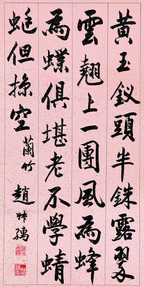 黃玉釵頭半銖露翠
雲翹上一團風為蜂
為蝶俱堪老不學蜻
蜓但掠空
蘭竹 趙叔孺